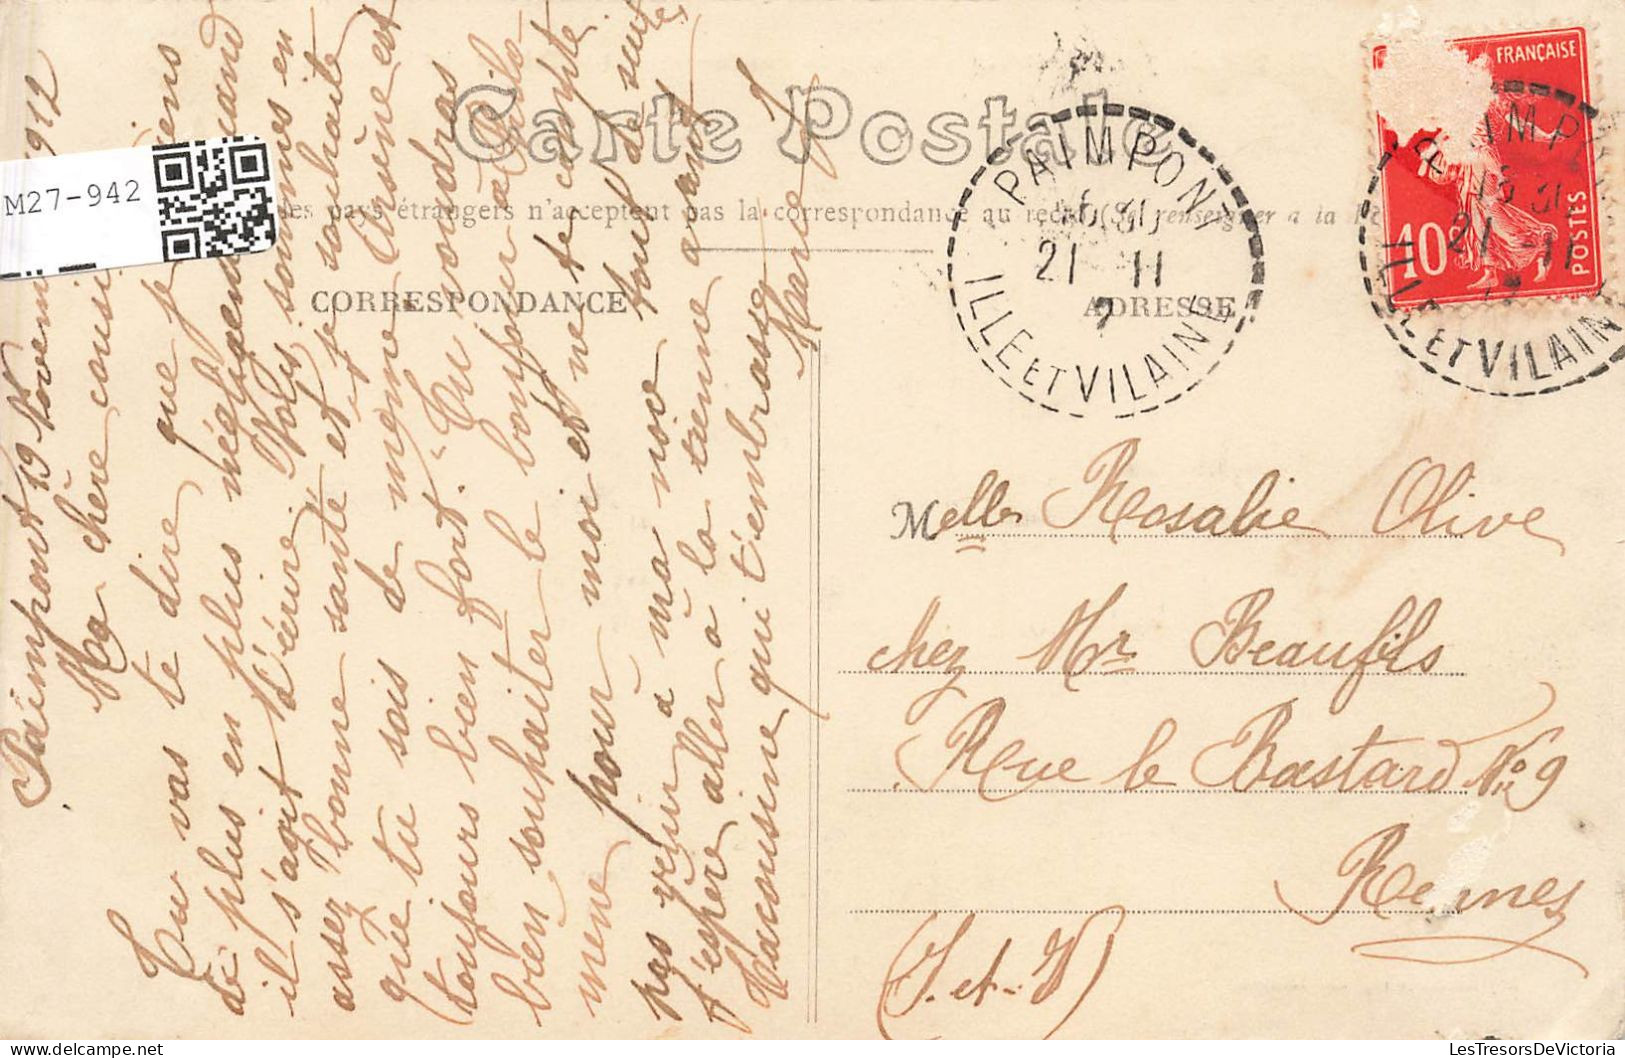 Carte Postale
les pays étrangers n'acceptent pas la correspondance au recto (Se renseigner à la
CORRESPONDANCE
ADRESSE
M27-942
FRANÇAISE
10c
POSTES
PAIMPONT
21 - 11
ILLE ET VILAINE
21 - 11
ILLE ET VILAINE
Paimpont 19 Novem 1912
Ma chère cousi
Tu vas te dire que je
de plus en plus négligen quand
il s'agit d'écrire. Nous sommes en
assez bonne santé et je souhaite
que tu sois de même. est
toujours bien fort. Tu voudras
bien souhaiter le bonjour à
mene pour moi et ne te compte
pas venir à ma noce tout de suite
j'espère aller à la tienne avant
Ta cousine qui t'embrasse
Marie J
Melle Rosalie Olive
chez Mr Beaufils
Rue le Bastard No 9
Rennes
(I-et-V)
LesTresorsDeVictoria (DelCampe.net)